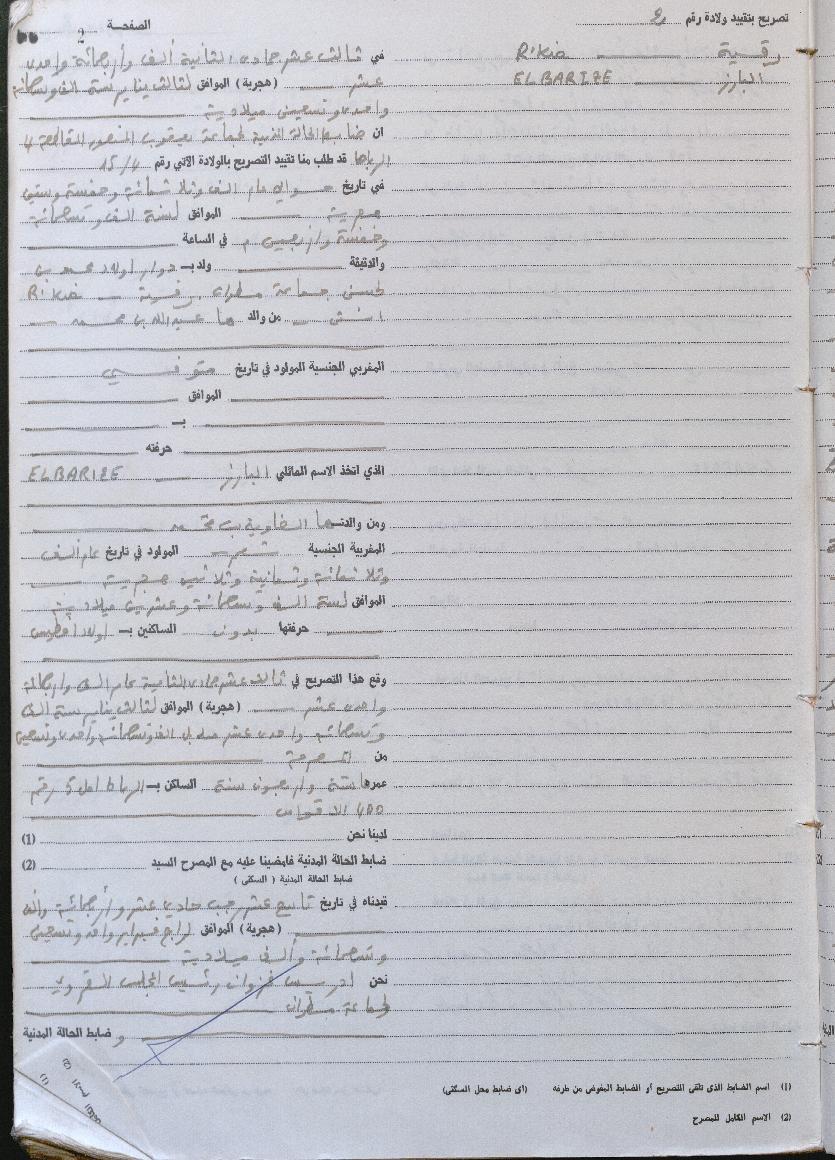 تصريح بتقييد ولادة رقم 2
الصفحة 2
رقية R'kia
البارز ELBARIZE
في ثالث عشر جمادى الثانية ألف وأربعمائة واحدى
عشر (هجرية) الموافق لثالث يناير سنة الف وتسعمائة
واحدى وتسعين ميلادية
ان ضابط الحالة المدنية لجماعة يعقوب المنصور المقاطعة 4
الرباط قد طلب منا تقييد التصريح بالولادة الآتي رقم 15/4
في تاريخ حوالي عام الف وثلاثمائة وخمسة وستين
هجرية الموافق لسنة الف وتسعمائة
وخمسة واربعين م في الساعة
والدقيقة ولد بـ دوار اولاد محمد بن
لحسن جماعة رقية R'kia
انثى من والد ها عبد الله بن محمد
المغربي الجنسية المولود في تاريخ متوفى
الموافق
بـ
حرفته
الذي اتخذ الاسم العائلي البارز ELBARIZE
ومن والدتـها الضاوية بـ محمد
المغربية الجنسية المولود في تاريخ عام الف
وثلاثمائة وثمانية وثلاثين هجرية
الموافق لسنة الف وتسعمائة وعشرين ميلادية
حرفتها بدون الساكنين بـ اولاد
وقع هذا التصريح في ثالث عشر جمادى الثانية عام الف واربعمائة
واحدى عشر (هجرية) الموافق لثالث يناير سنة الف
وتسعمائة واحدى عشر وتسعمائة واحدى وتسعين
من المصرحة
عمرها ستة واربعون سنة الساكن بـ الرباط رقم
400 الاقواس
لدينا نحن (1)
ضابط الحالة المدنية فامضينا عليه مع المصرح السيد (2)
ضابط الحالة المدنية (السكنى)
قيدناه في تاريخ تاسع عشر رجب حادي عشر وأربعمائة والف
(هجرية) الموافق لرابع فبراير واحد وتسعين
وتسعمائة وألف ميلادية
نحن ادريس غزوان رئيس المجلس القروي
لجماعة
و ضابط الحالة المدنية
(1) اسم الضابط الذي تلقى التصريح أو الضابط المفوض من طرفه (اي ضابط محل السكنى)
(2) الاسم الكامل للمصرح